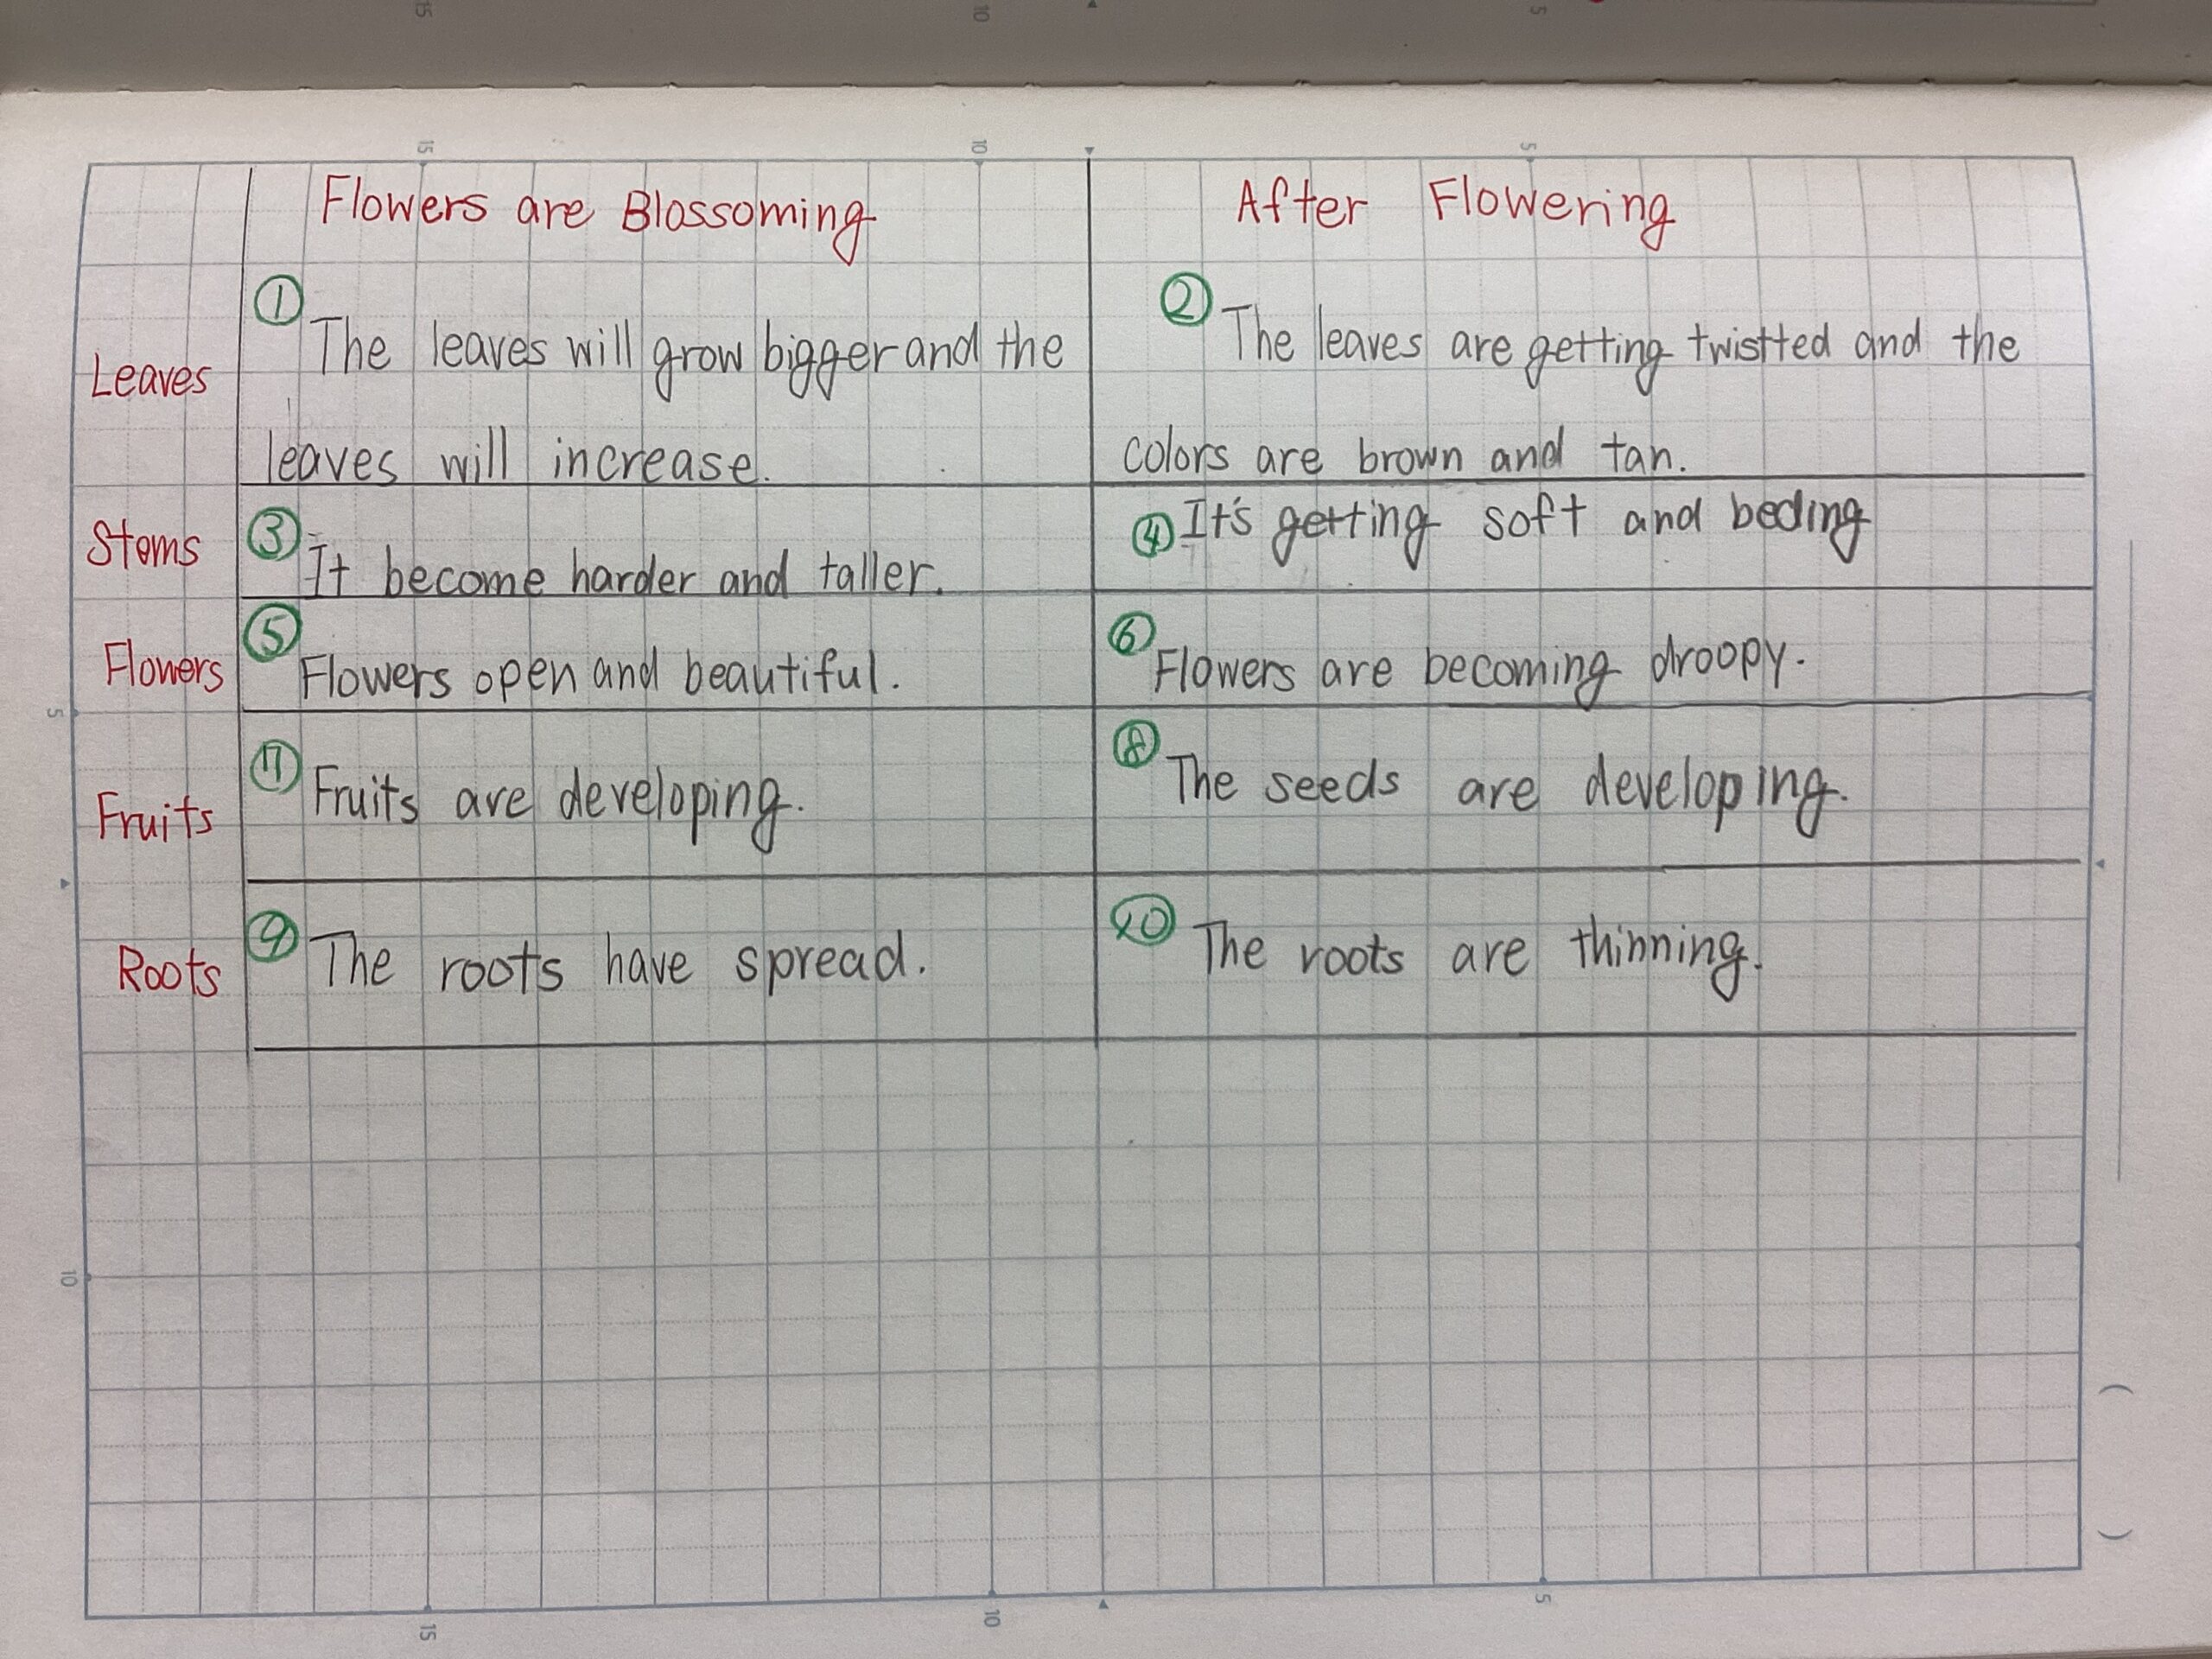 15 10 5
15 10 5
Flowers are Blossoming After Flowering
① The leaves will grow bigger and the
leaves will increase.
② The leaves are getting twistted and the
colors are brown and tan.
Leaves
Stems ③ It become harder and taller.
④ It's getting soft and beding
Flowers ⑤ Flowers open and beautiful.
⑥ Flowers are becoming droopy.
5
Fruits ⑦ Fruits are developing.
⑧ The seeds are developing.
Roots ⑨ The roots have spread.
⑩ The roots are thinning.
10
( )
15 10 5